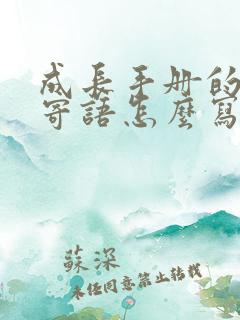 成長手册的
寄語怎麼寫
蘇深
未经同意禁止转载